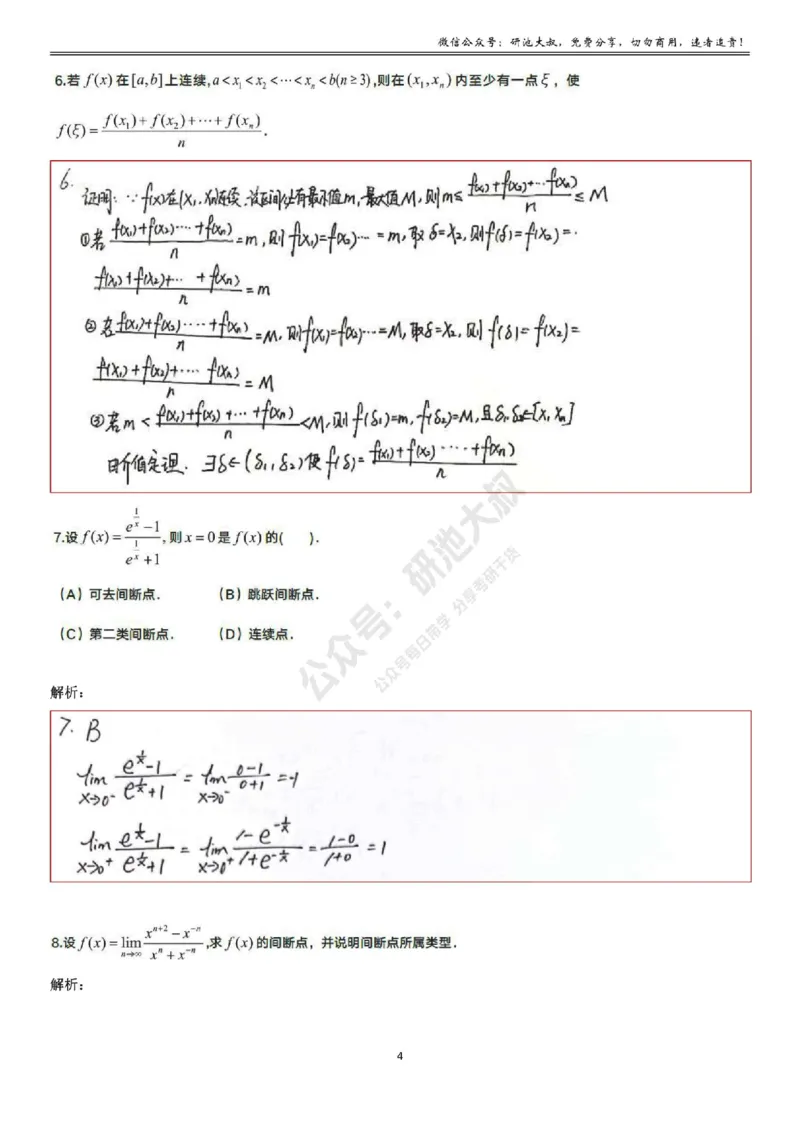 微信公众号：研池大叔，免费分享，切勿商用，违者追责！
6.若 f(x) 在 [a,b] 上连续, a < x₁ < x₂ < ⋯ < xₙ < b(n ≥ 3), 则在 (x₁, xₙ) 内至少有一点 ξ ，使
f(ξ) = (f(x₁) + f(x₂) + ⋯ + f(xₙ)) / n .
6.
证明: ∵ f(x)在[x₁, xₙ]连续 ∴该区间处有最小值m, 最大值M, 则 m ≤ (f(x₁)+f(x₂)+⋯f(xₙ)) / n ≤ M
①若 (f(x₁)+f(x₂)⋯+f(xₙ)) / n = m, 则 f(x₁)=f(x₂)⋯ = m, 取 δ=x₂, 则f(δ)=f(x₂)=
(f(x₁)+f(x₂)+⋯ +f(xₙ)) / n = m
②若 (f(x₁)+f(x₂)⋯+f(xₙ)) / n = M, 则 f(x₁)=f(x₂)⋯=M, 取δ=x₂, 则 f(δ)= f(x₂)=
(f(x₁)+f(x₂)+⋯ f(xₙ)) / n = M
③若 m < (f(x₁)+f(x₂)+⋯+f(xₙ)) / n < M, 则 f(δ₁)=m, f(δ₂)=M, 且 δ₁, δ₂∈[x₁, xₙ]
由介值定理. ∃δ∈(δ₁, δ₂) 使 f(δ)= (f(x₁)+f(x₂)⋯+f(xₙ)) / n
7.设 f(x) = (e^(1/x) − 1) / (e^(1/x) + 1) , 则 x = 0 是 f(x) 的( ).
（A）可去间断点. （B）跳跃间断点.
（C）第二类间断点. （D）连续点.
公众号：研池大叔
公众号每日带学 分享考研干货
解析：
7. B
lim x→0⁻ (e^(1/x)−1) / (e^(1/x)+1) = lim x→0⁻ (0−1) / (0+1) = −1
lim x→0⁺ (e^(1/x)−1) / (e^(1/x)+1) = lim x→0⁺ (1−e^(−1/x)) / (1+e^(−1/x)) = (1−0) / (1+0) = 1
8.设 f(x) = lim n→∞ (x^(n+2) − x^(−n)) / (x^n + x^(−n)) ,求 f(x) 的间断点，并说明间断点所属类型.
解析：
4